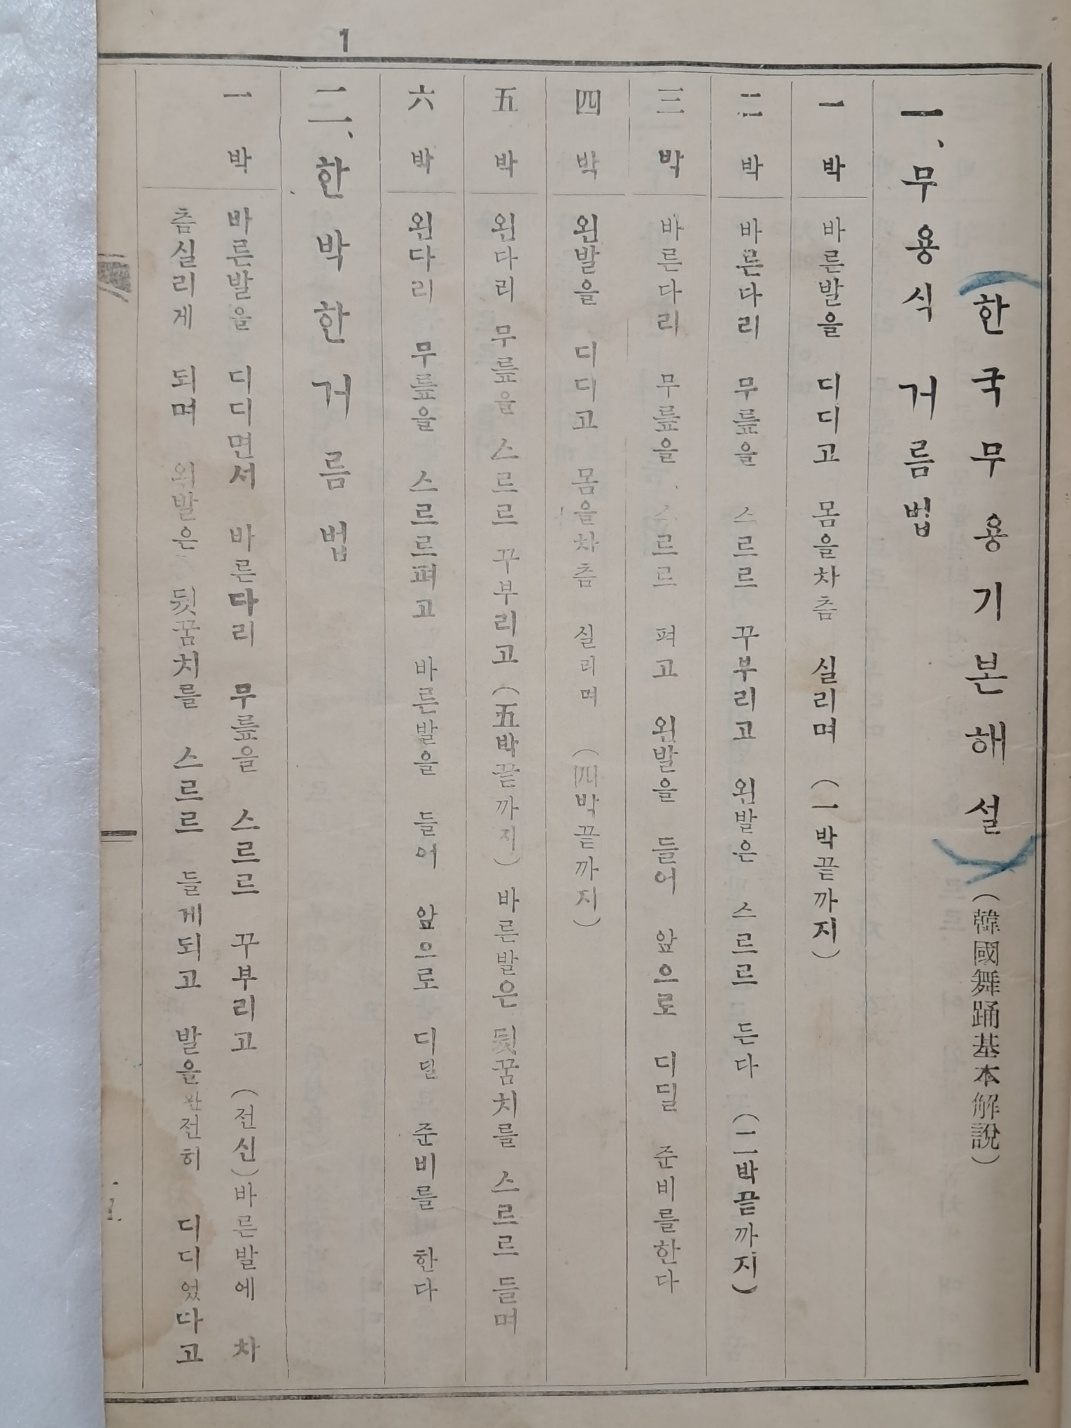 1
한국무용기본해설 (韓國舞踊基本解說)
一、무용식 거름법
一박 바른발을 디디고 몸을차츰 실리며 (一박끝까지)
二박 바른다리 무릎을 스르르 꾸부리고 왼발은 스르르 든다 (二박끝까지)
三박 바른다리 무릎을 스르르 펴고 왼발을 들어 앞으로 디딜 준비를한다
四박 왼발을 디디고 몸을차츰 실리며 (四박끝까지)
五박 왼다리 무릎을 스르르 꾸부리고 (五박끝까지) 바른발은 뒷꿈치를 스르르 들며
六박 왼다리 무릎을 스르르펴고 바른발을 들어 앞으로 디딜 준비를 한다
二、한박한거름법
一박 바른발을 디디면서 바른다리 무릎을 스르르 꾸부리고 (전신)바른발에 차
츰실리게 되며 왼발은 뒷꿈치를 스르르 들게되고 발을완전히 디디었다고